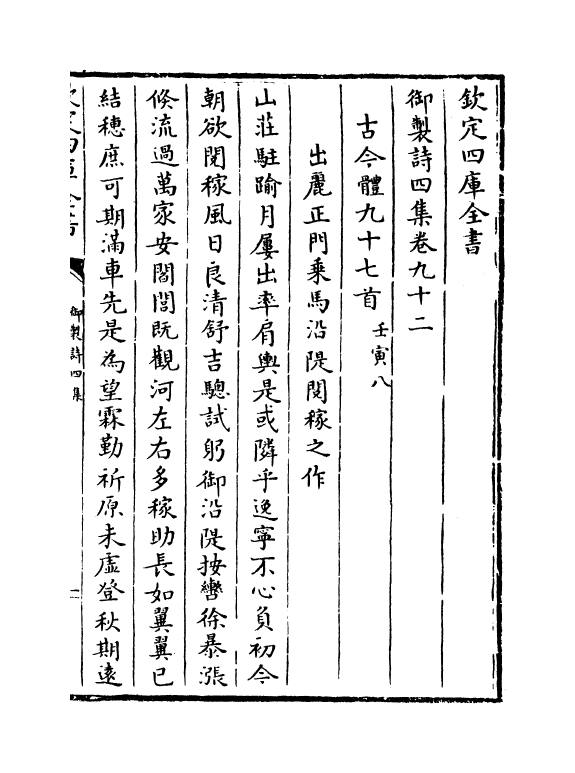 欽定四庫全書
御製詩四集卷九十二
古今體九十七首 壬寅八
出麗正門乘馬沿隄閱稼之作
山莊駐踰月屢出率肩輿是或隣乎逸寧不心負初今
朝欲閱稼風日良清舒吉驄試躬御沿隄按轡徐暴漲
倐流過萬家安閭閻既觀河左右多稼助長如翼翼已
結穗庶可期滿車先是為望霖勤祈原未虛登秋期遠
欽定四庫全書
御製詩四集